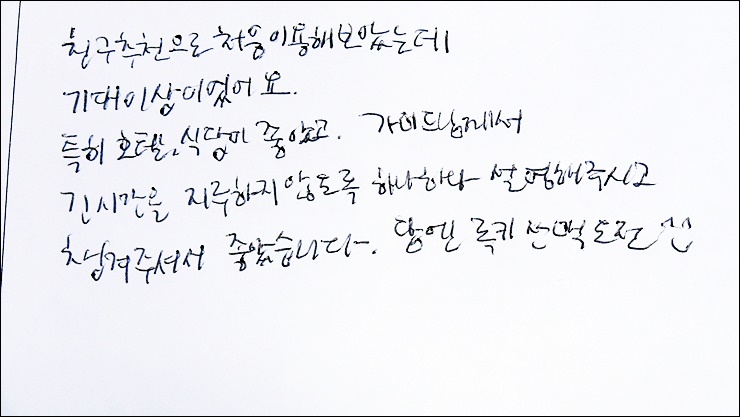 친구추천으로 처음이용해보았는데
기대이상이였어요.
특히 호텔, 식당이 좋았고. 가이드님께서
긴시간을 지루하지 않도록 하나하나 설명해주시고
챙겨주셔서 좋았습니다. 담엔 록키산맥 도전 ^^